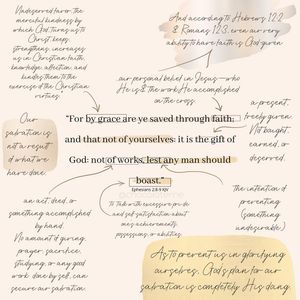 Undeserved favor, the
merciful kindness by
which God turns us to
Christ, keeps,
strengthens, increases
us in Christian faith,
knowledge, affection, and
kindles them to the
exercise of the Christian
virtues."
And according to Hebrews 12:2
& Romans 12:3, even our very
ability to have faith is God-given
our personal belief in Jesus—who
He is & the work He accomplished
on the cross.
a present,
freely given.
Not bought,
earned, or
deserved.
Our
salvation is
not a result
of what we
have done.
"For by grace are ye saved through faith;
and that not of yourselves: it is the gift of
God: not of works, lest any man should
boast."
Ephesians 2:8-9 KJV
an act, deed, or
something accomplished
by hand.
No amount of giving,
prayer, sacrifice,
studying, or any good
work done by self, can
secure our salvation.
To talk with excessive pride
and self-satisfaction about
one's achievements,
possessions, or abilities.
the intention of
preventing
(something
undesirable)
As to prevent us in glorifying
ourselves, God's plan for our
salvation is completely His doing.